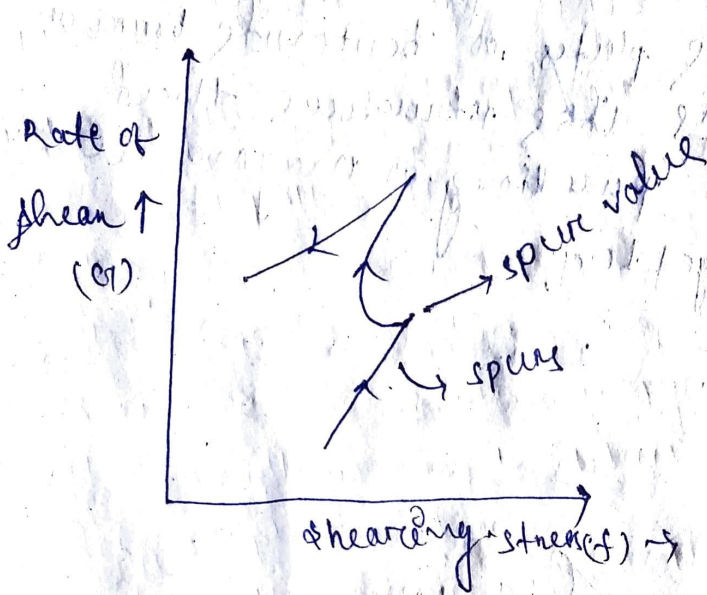 Rate of
shear ↑
(G)
spur value
spurs
shearing stress(f) →